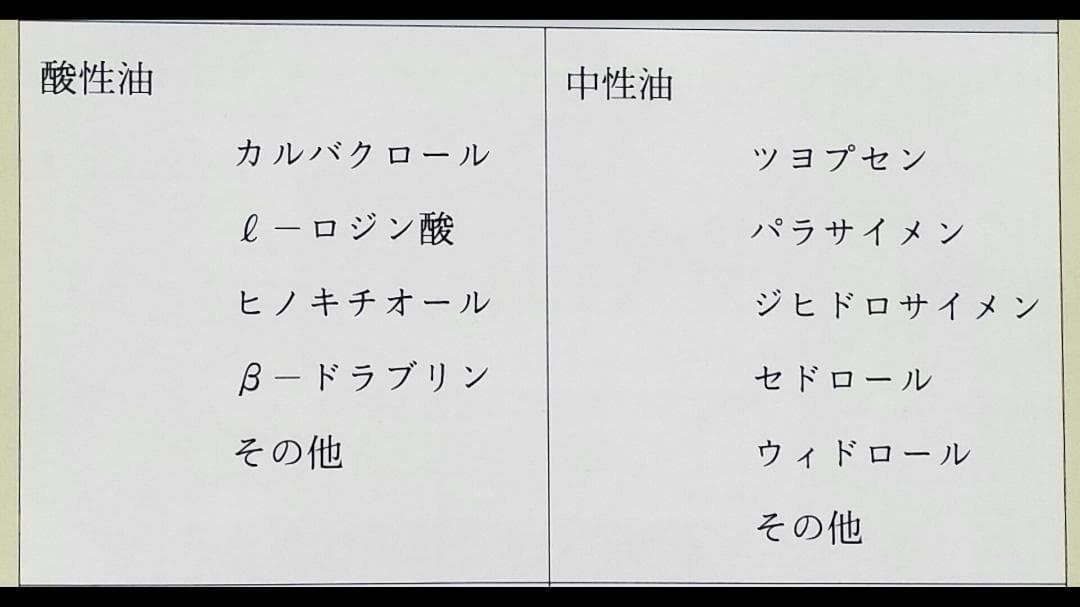 酸性油
カルバクロール
ℓ－ロジン酸
ヒノキチオール
β－ドラブリン
その他
中性油
ツヨプセン
パラサイメン
ジヒドロサイメン
セドロール
ウィドロール
その他